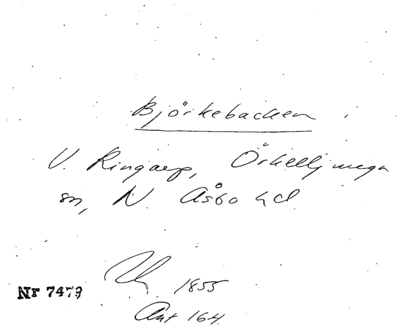 Björkebacken
V. Ringarp, Örkelljunga
sn, N. Åsbo hd.
1855
Nr 7479
Ant 164.